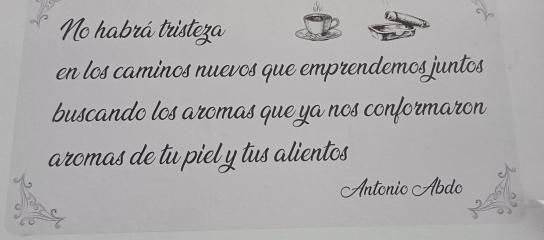 No habrá tristeza
en los caminos nuevos que emprendemos juntos
buscando los aromas que ya nos conformaron
aromas de tu piel y tus alientos
Antonio Abdo